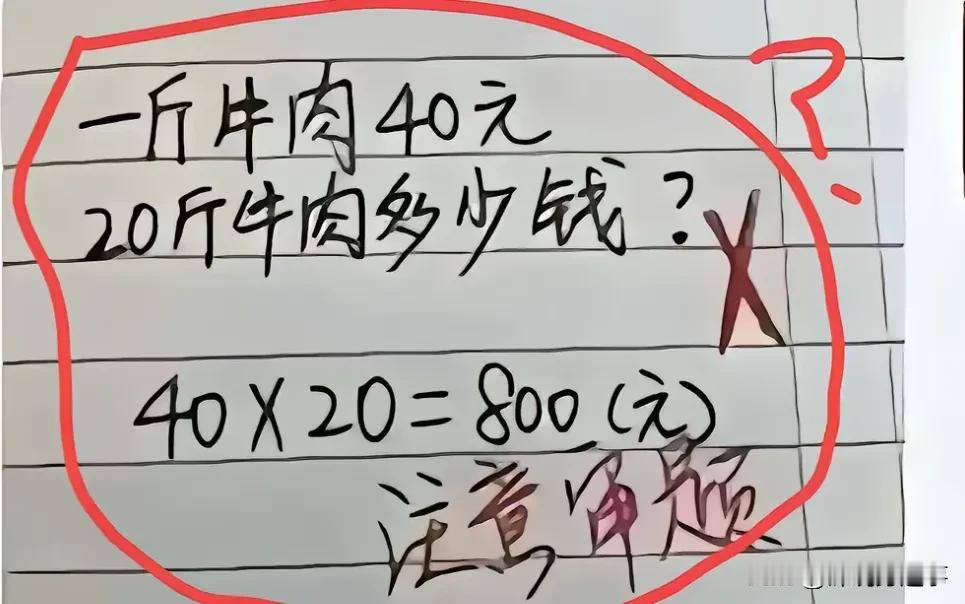 一斤牛肉40元
20斤牛肉多少钱?
?
X
40X20=800(元)
注意审题